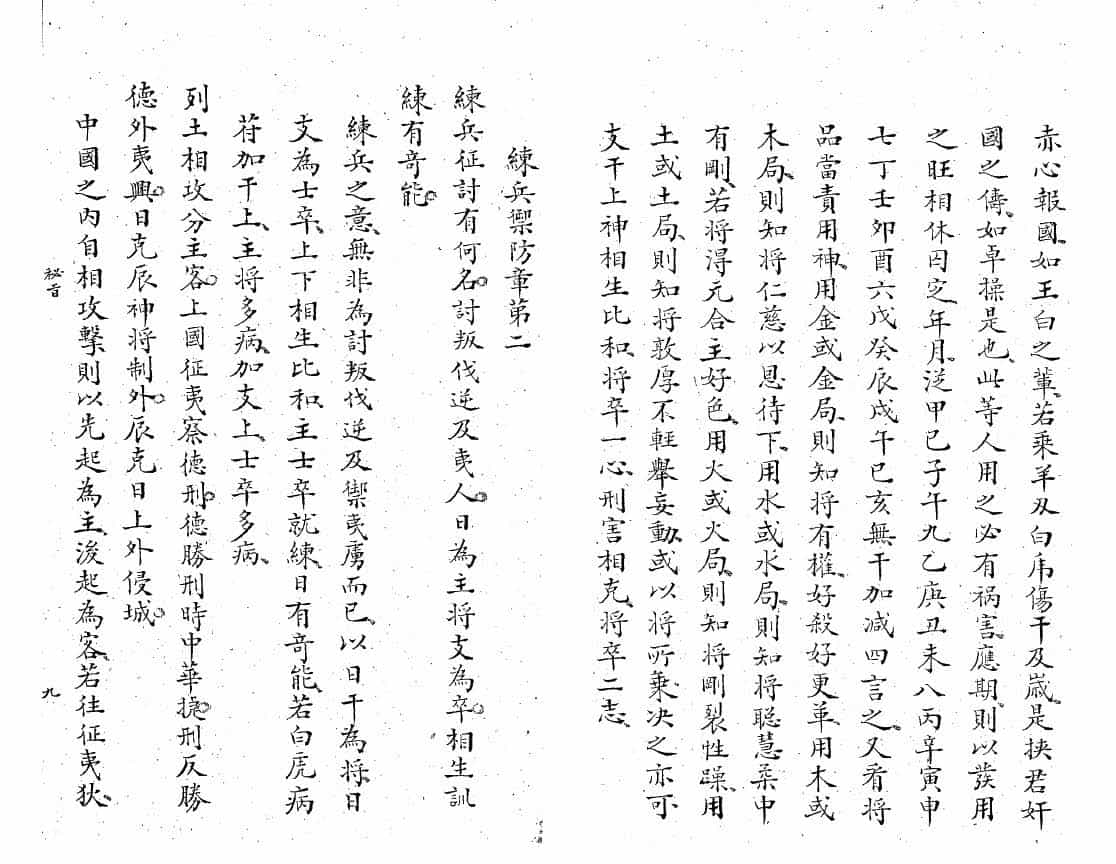 赤心報國、如王白之輩、若乘羊刃白虎傷干及歲、是挾君奸
國之儔、如卓操是也、此等人用之必有禍害、應期、則以發用
之旺相休囚定年月、泛甲己子午九乙庚丑未八丙辛寅申
七丁壬卯酉六戊癸辰戌午巳亥無干加減四言之、又看將
品當責用神、用金或金局、則知將有權、好殺好更革、用木或
木局、則知將仁慈以恩待下、用水或水局、則知將聰慧柔中
有剛、若將得元合主好色、用火或火局、則知將剛裂性躁、用
土或土局、則知將敦厚不輕舉妄動、或以將所乘决之亦可、
支干上神相生比和、將卒一心、刑害相克、將卒二志、
練兵禦防章第二
練兵征討有何名。討叛伐逆及夷人。日為主將支為卒。相生訓
練有奇能。
練兵之意、無非為討叛伐逆及禦夷虜而已、以日干為將、日
支為士卒、上下相生比和、主士卒就練、日有奇能、若白虎病
符加干上、主將多病、加支上、士卒多病、
列土相攻分主客。上國征夷察德刑。德勝刑時中華捷。刑反勝
德外夷興。日克辰神將制外。辰克日上外侵城。
中國之內自相攻擊則以先起為主、後起為客、若往征夷狄、
秘旨
九